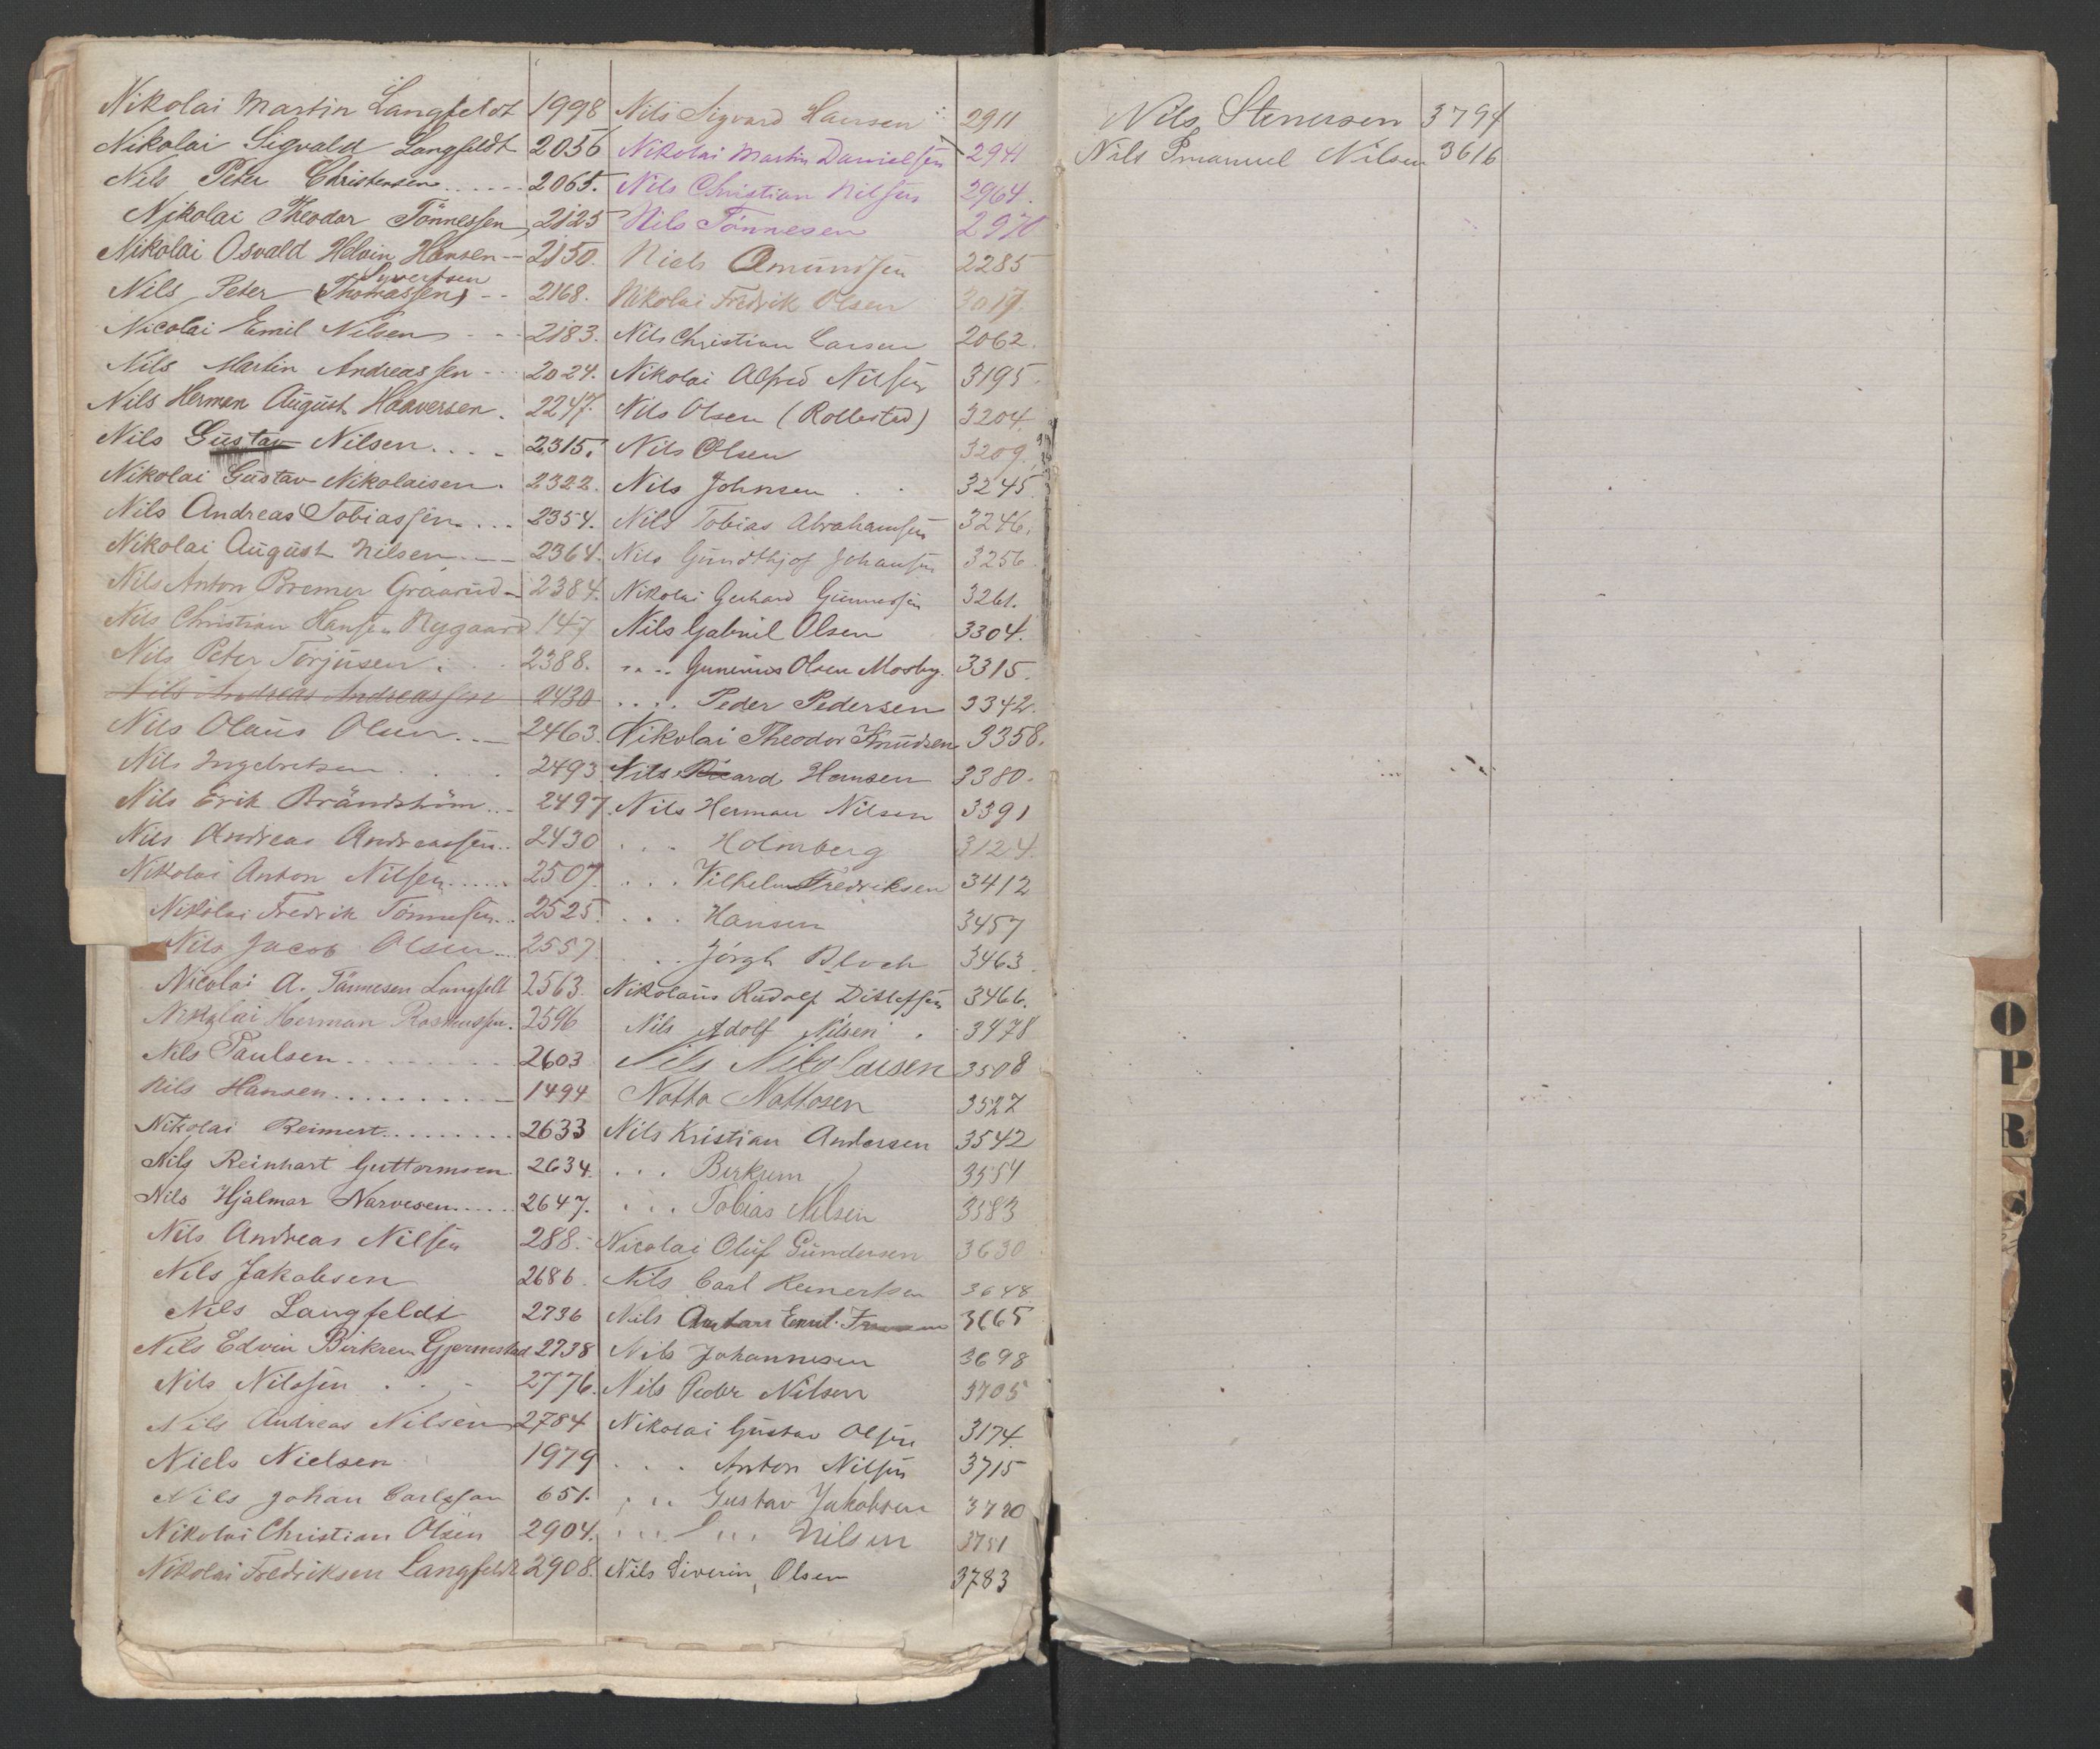 Nikolai Martin Langfeldt 1998
Nikolai Sigvald Langfeldt 2056
Nils Peter Christensen 2065.
Nikolai Theodor Tönnessen 2125
Nikolai Osvald Hansen 2150.
Syvertsen
Nils Peter (Thomassen) 2168.
Nicolai Emil Nilsen 2183.
Nils Martin Andreassen 2024.
Nils Herman August Haaversen. 2247.
Nils Gustav Nilsen.... 2315.
Nikolai Gustav Nikolaisen. 2322.
Nils Andreas Tobiassen... 2354.
Nikolai August Nilsen 2364.
Nils Anton Bremer Graarud 2384.
Nils Christian Hansen Nygaard 147
Nils Peter Torjusen 2388.
Nils Andreas Andreassen 2430
Nils Olaus Olsen 2463.
Nils Ingebretsen 2493
Nils Erik Brändström 2497.
Nils Andreas Andreassen.. 2430
Nikolai Anton Nilsen...... 2507.
Nikolai Fredrik Tönnesen.. 2525.
Nils Jacob Olsen... 2557.
Nicolai A. Tönnesen Langfelt 2563.
Nikolai Herman Rasmussen. 2596
Nils Paulsen 2603
Nils Hansen 1494
Nikolai Reimert 2633
Nils Reinhart Guttormsen 2634.
Nils Hjalmar Narvesen 2647.
Nils Andreas Nilsen 288.
Nils Jakobsen 2686.
Nils Langfeldt 2736
Nils Edvin Birkrem Gjermestad 2738
Nils Nilssen 2776.
Nils Andreas Nilsen 2784
Niels Nielsen 1979
Nils Johan Carlsson 651.
Nikolai Christian Olsen 2904.
Nikolai Fredriksen Langfeldt 2908.
Nils Sigvard Hansen 2911
Nikolai Martin Danielsen 2941
Nils Christian Nilsen 2964.
Nils Tönnesen 2970
Niels Omundsen 2285
Nikolai Fredrik Olsen 3017.
Nils Christian Larsen 2062.
Nikolai Alfred Nilsen 3195.
Nils Olsen (Rollested) 3204.
Nils Olsen 3209.
Nils Johnsen 3245
Nils Tobias Abrahamsen 3246.
Nils Gundthjof Johansen 3256
Nikolai Gerhard Gunnersen 3261.
Nils Gabriel Olsen 3304.
.... Gunerius Olsen Mosby. 3315.
.... Peder Pedersen 3342.
Nikolai Theodor Knudsen 3358.
Nils Hansen 3380.
Nils Herman Nilsen 3391
... Holmberg 3124.
... Vilhelm Fredriksen 3412
... Hansen 3457
... Jörgh Bloch 3463.
Nikolaus Rudolf Ditlefsen 3466.
Nils Adolf Nilsen 3478
Nils Nikolaisen 3508
Notto Nottosen 3527
Nils Kristian Andersen 3542
... Birkrem 3554
... Tobias Nilsen 3583
Nicolai Oluf Gundersen 3630
Nils Carl Reinertsen 3648
Nils Emil 3665
Nils Johannesen 3698
Nils Peder Nilsen 3705
Nikolai Gustav Olsen 3174.
... Anton Nilsen 3715
... Gustav Jakobsen 3720
Nilsen 3751
Nils Siverin Olsen 3783
Nils Stenersen 3794
Nils Emanuel Nilsen 3616
O
P
R
S